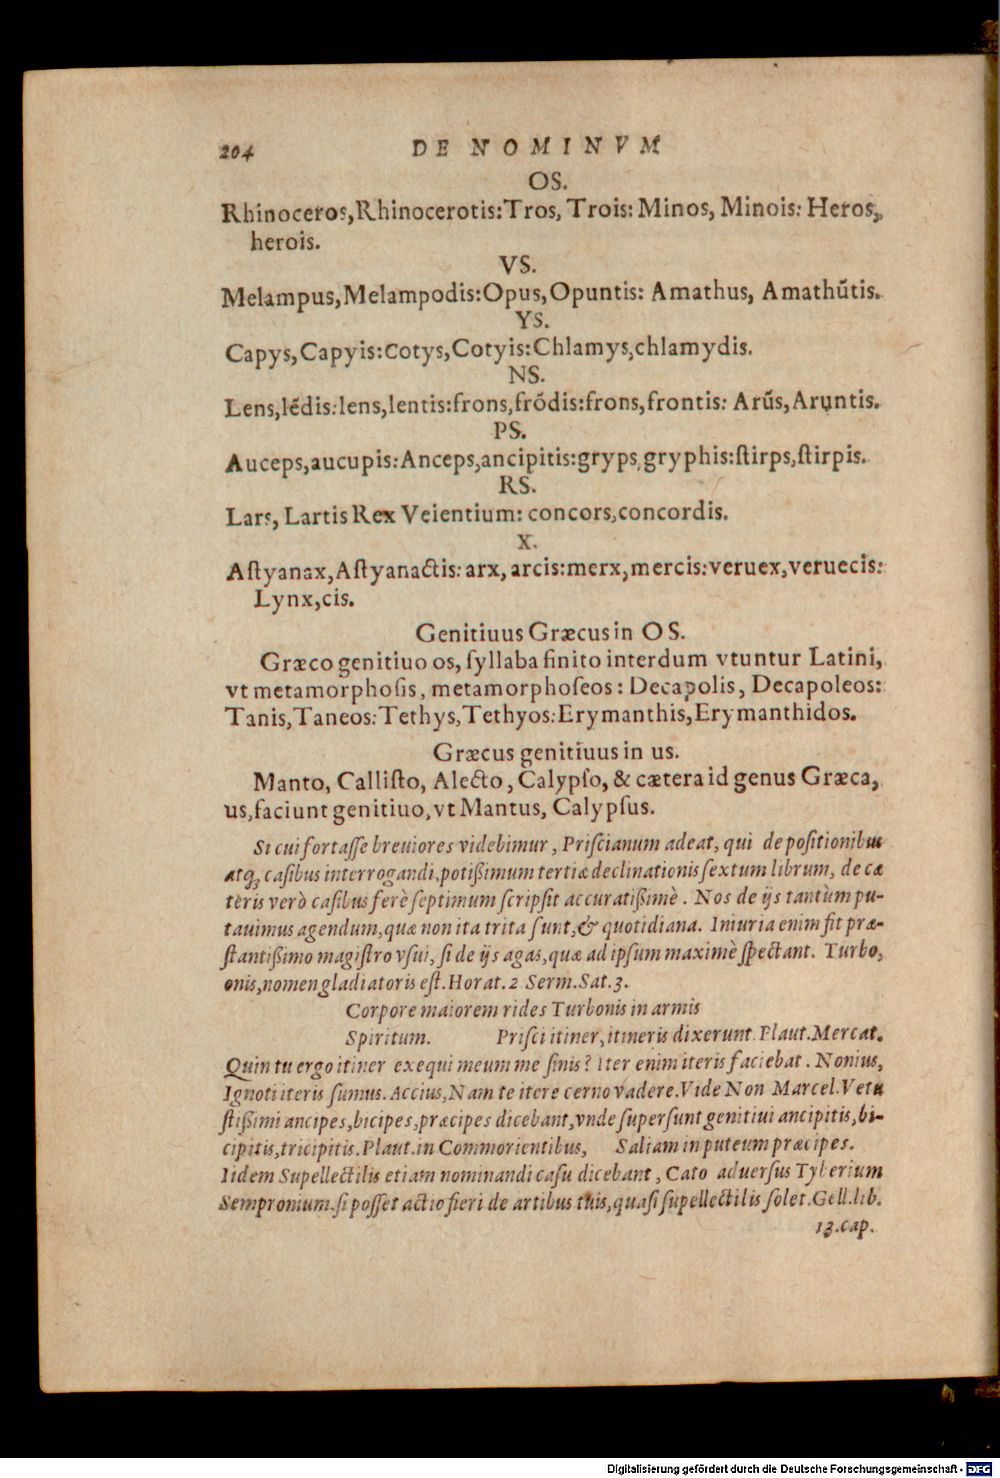 204 DE NOMINVM
OS.
Rhinoceros,Rhinocerotis:Tros, Trois: Minos, Minois: Heros,
herois.
VS.
Melampus,Melampodis:Opus,Opuntis: Amathus, Amathũtis.
YS.
Capys,Capyis:Cotys,Cotyis:Chlamys,chlamydis.
NS.
Lens,lẽdis:lens,lentis:frons,frõdis:frons,frontis: Arũs,Aruntis.
PS.
Auceps,aucupis:Anceps,ancipitis:gryps,gryphis:ſtirps,ſtirpis.
RS.
Lars, Lartis Rex Veientium: concors,concordis.
X.
Aſtyanax,Aſtyanactis: arx, arcis:merx,mercis:veruex,veruecis:
Lynx,cis.
Genitiuus Græcus in OS.
Græco genitiuo os, ſyllaba finito interdum vtuntur Latini,
vt metamorphoſis, metamorphoſeos: Decapolis, Decapoleos:
Tanis,Taneos:Tethys,Tethyos:Erymanthis,Erymanthidos.
Græcus genitiuus in us.
Manto, Calliſto, Alecto, Calypſo, & cætera id genus Græca,
us,faciunt genitiuo,vt Mantus, Calypſus.
Si cui fortaſſe breuiores videbimur, Priſcianum adeat, qui de poſitionibus
atq; caſibus interrogandi,potißimum tertiæ declinationis ſextum librum, de cæ
teris verò caſibus ferè ſeptimum ſcripſit accuratißimè. Nos de ijs tantùm pu-
tauimus agendum,quæ non ita trita ſunt,& quotidiana. Iniuria enim fit præ-
ſtantißimo magiſtro vſui, ſi de ijs agas,quæ ad ipſum maximè ſpectant. Turbo,
onis,nomen gladiatoris eſt.Horat.2 Serm.Sat.3.
Corpore maiorem rides Turbonis in armis
Spiritum. Priſci itiner,itineris dixerunt.Plaut.Mercat.
Quin tu ergo itiner exequi meum me ſinis? Iter enim iteris faciebat. Nonius,
Ignoti iteris ſumus. Accius,Nam te itere cerno vadere.Vide Non Marcel.Vetu
ſtißimi ancipes,bicipes,præcipes dicebant,vnde ſuperſunt genitiui ancipitis,bi-
cipitis,tricipitis.Plaut.in Commorientibus, Saliam in puteum præcipes.
Iidem Supellectilis etiam nominandi caſu dicebant, Cato aduerſus Tyberium
Sempronium.ſi poſſet actio fieri de artibus tuis,quaſi ſupellectilis ſolet.Gell.lib.
13.cap.
Digitalisierung gefördert durch die Deutsche Forschungsgemeinschaft - DFG